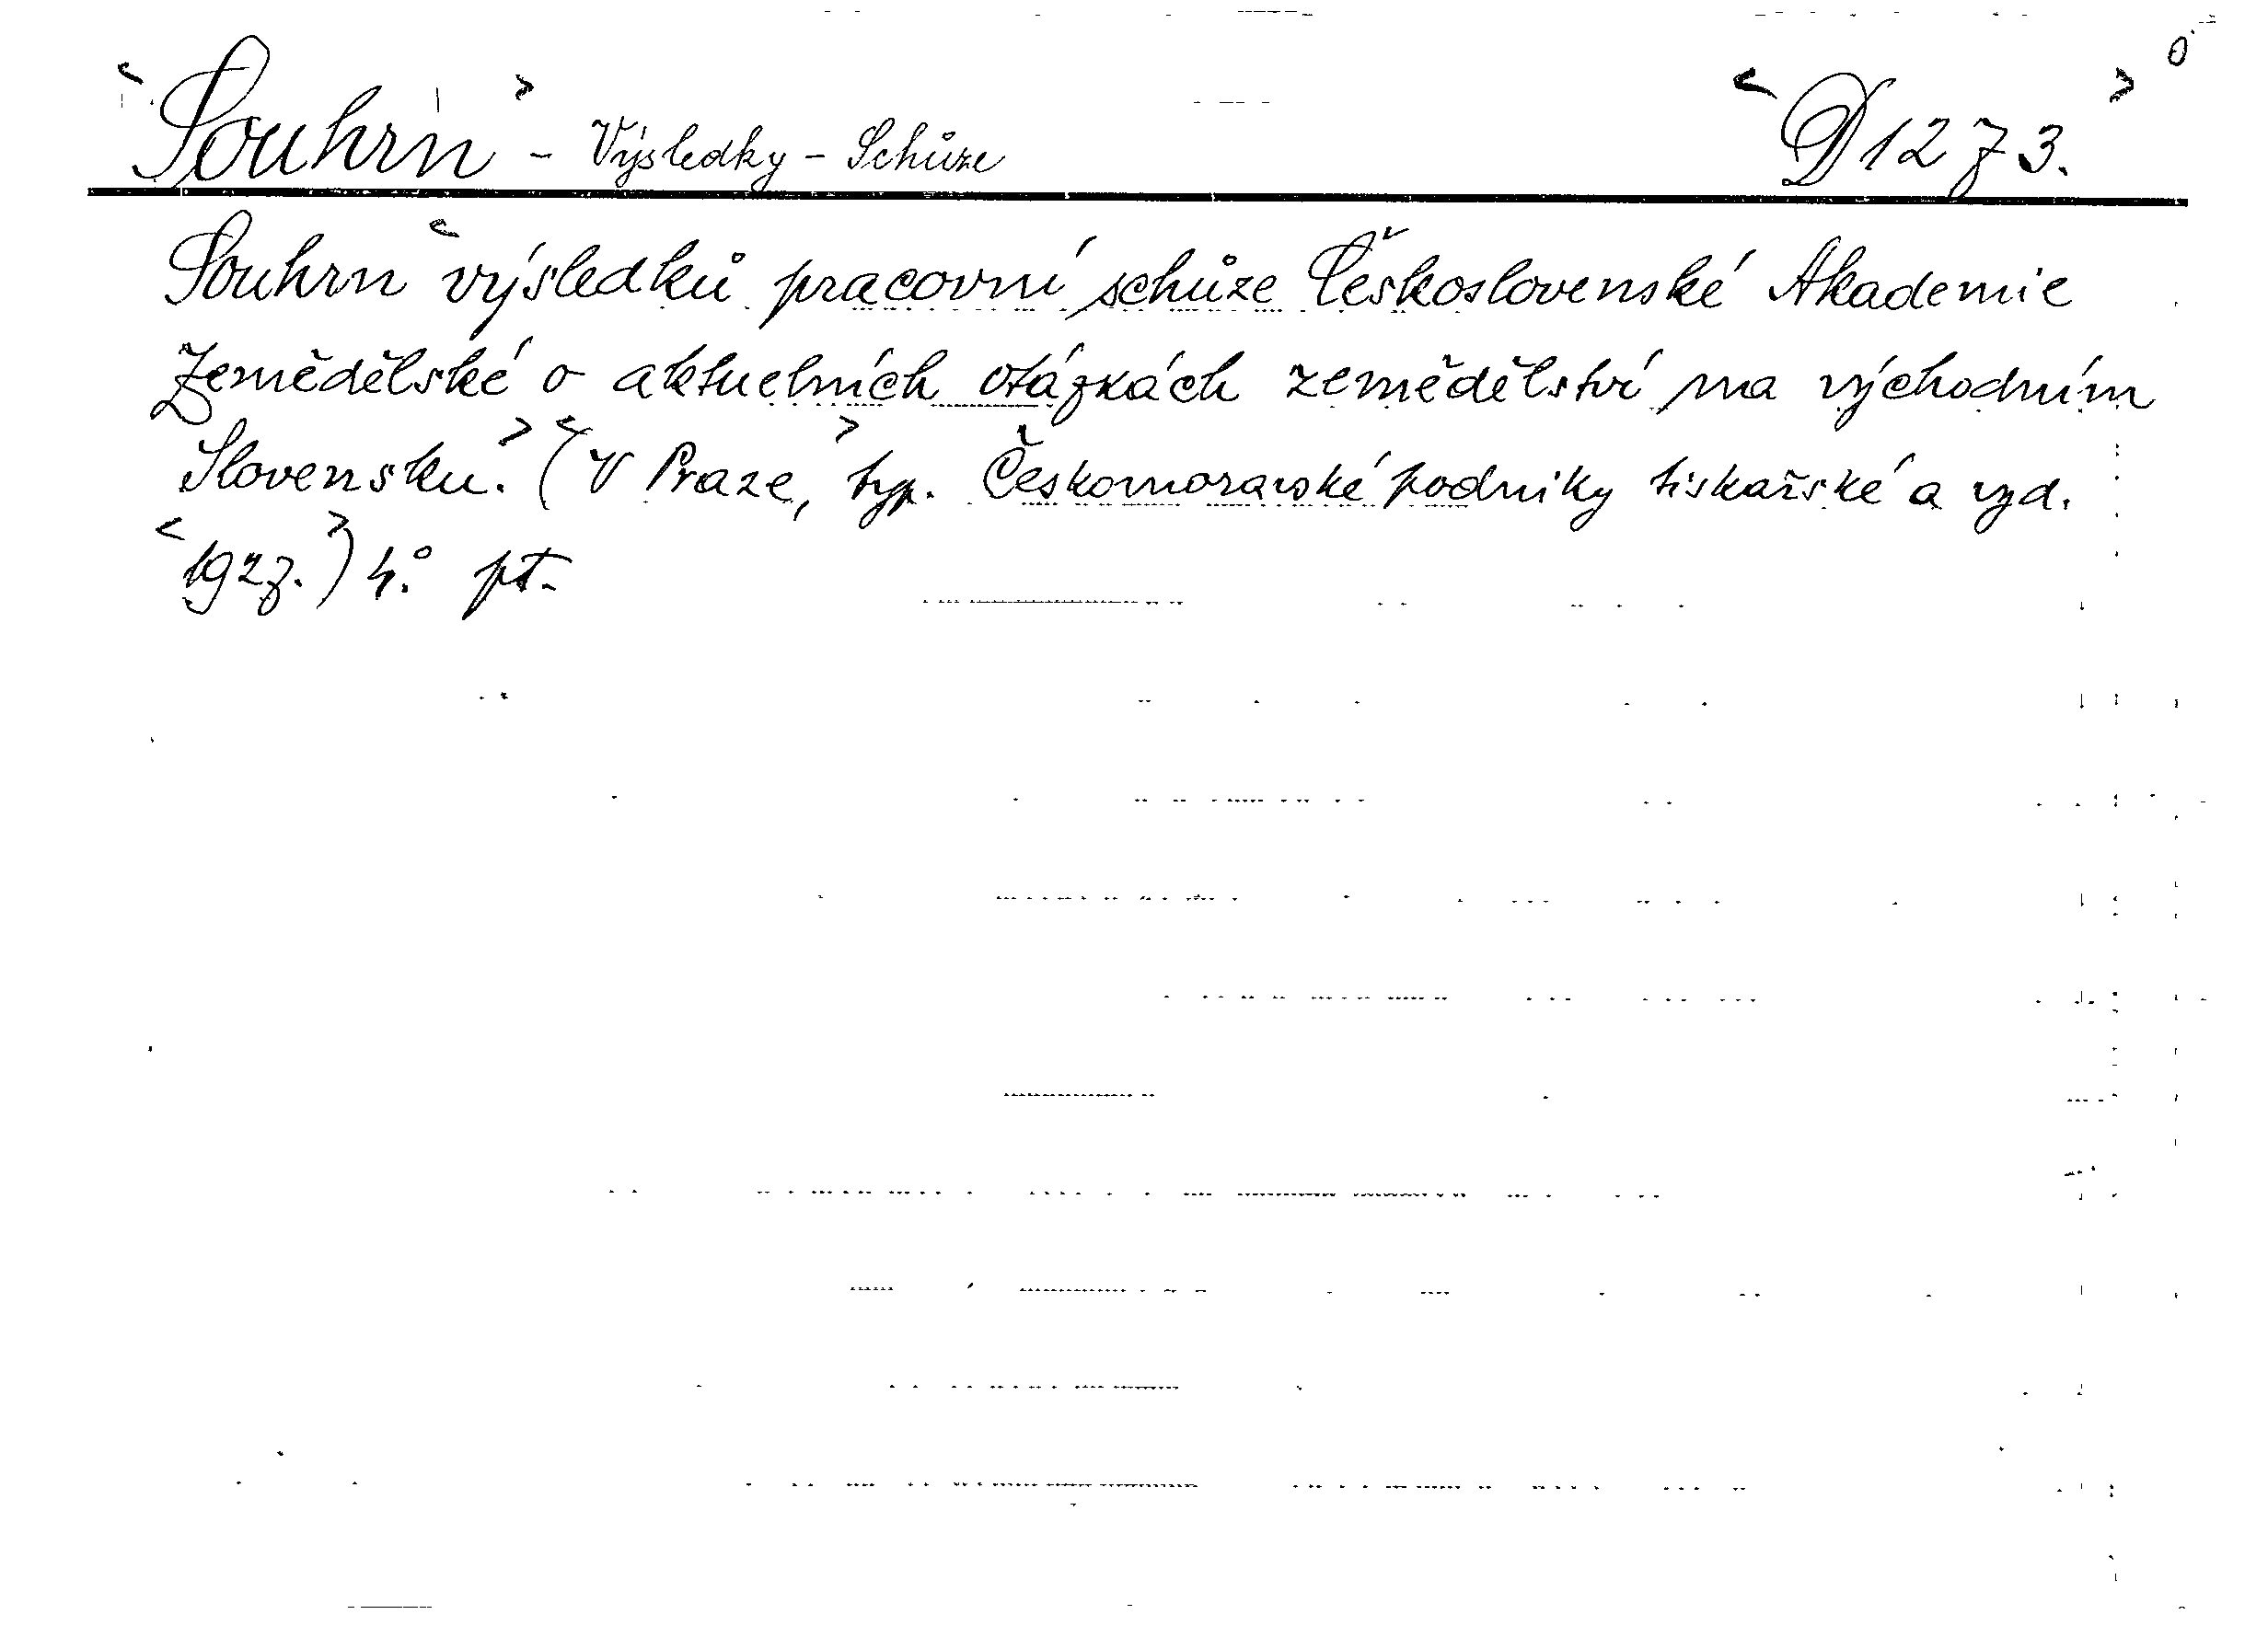 <Souhrn> - Výsledky - Schůze <D 1273.> 0
Souhrn <výsledků pracovní schůze Československé Akademie
Zemědělské o aktuelních otázkách zemědělství na východním
Slovensku.> <(V Praze,> typ. Českomoravské podniky tiskařské a vyd.
<1927.>) 4.° pt.